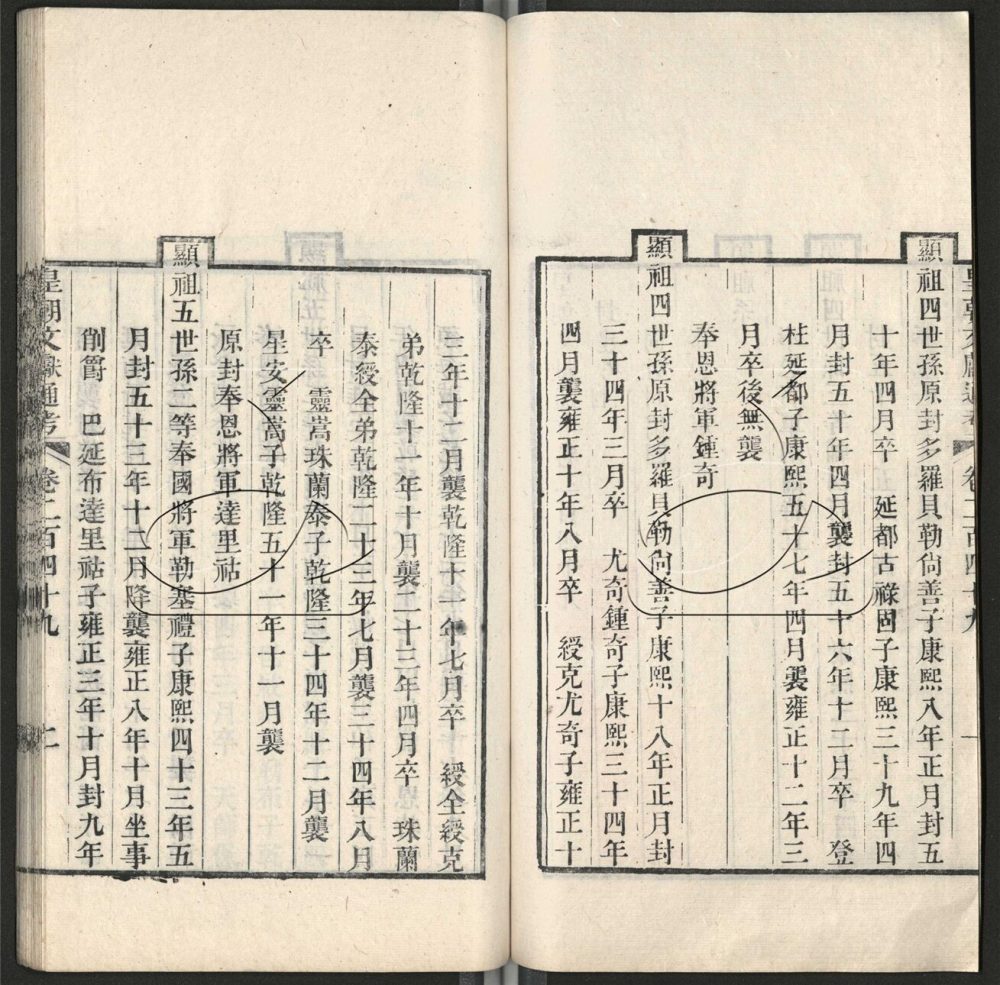 皇朝文獻通考 卷二百四十九
顯祖四世孫原封多羅貝勒尙善子康熙八年正月封五
十年四月卒 延都古祿固子康熙三十九年四
月封五十年四月襲封五十六年十二月卒 登
柱延都子康熙五十七年四月襲雍正十二年三
月卒後無襲
奉恩將軍鍾奇
顯祖四世孫原封多羅貝勒尙善子康熙十八年正月封
三十四年三月卒 尤奇鍾奇子康熙三十四年
四月襲雍正十年八月卒 綬克尤奇子雍正十
三年十二月襲乾隆十一年七月卒 綬全綬克
弟乾隆十一年十月襲二十三年四月卒 珠蘭
泰綬全弟乾隆二十三年七月襲三十四年八月
卒 靈嵩珠蘭泰子乾隆三十四年十二月襲
星安靈嵩子乾隆五十一年十一月襲
原封奉恩將軍達里祜
顯祖五世孫二等奉國將軍勒塞禮子康熙四十三年五
月封五十三年十二月降襲雍正八年十月坐事
削爵 巴延布達里祜子雍正三年十月封九年
皇朝文獻通考 卷二百四十九